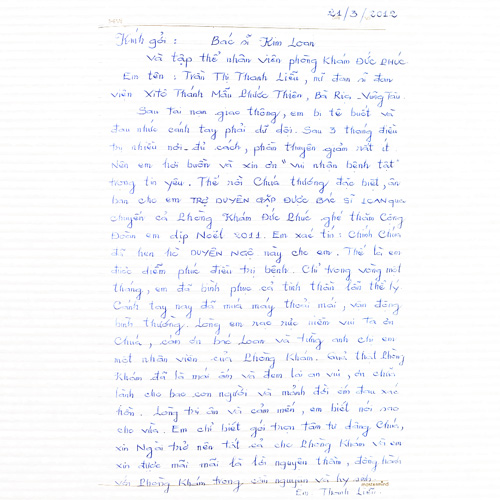 21/3/2012
Kính gởi : Bác sĩ Kim Loan
Và tập thể nhân viên phòng khám ĐỨC PHÚC
Em tên : Trần Thị Thanh Liễu, nữ đan sĩ đan
viện Xitô Thánh Mẫu Phước Thiên, Bà Rịa - Vũng Tàu
Sau tai nạn giao thông, em bị tê buốt và
đau nhức cánh tay phải dữ dội. Sau 3 tháng điều
trị nhiều nơi - đủ cách, phần thuyên giảm rất ít
Nên em hơi buồn và xin ơn "vui nhận bệnh tật"
trong tin yêu. Thế rồi Chúa thương đặc biệt, ân
ban cho em TRỢ DUYÊN GẶP ĐƯỢC BÁC SĨ LOAN qua
chuyến cả Phòng Khám Đức Phúc ghé thăm Cộng
Đoàn em dịp Noël 2011. Em xác tín : Chính Chúa
đã hẹn hò DUYÊN NGỘ này cho em. Thế là em
được diễm phúc điều trị bệnh. Chỉ trong vòng một
tháng, em đã bình phục cả tinh thần lẫn thể lý
Cánh tay nay đã múa máy thoải mái, vận động
bình thường. Lòng em rạo rực niềm vui tạ ơn
Chúa, cám ơn bác Loan và từng anh chị em
một nhân viên của Phòng Khám. Quả thật Phòng
Khám đã là mái ấm và đem lại an vui, ơn chữa
lành cho bao con người và mảnh đời ốm đau xác
hồn. Lòng tri ân và cảm mến, em biết nói sao
cho vừa. Em chỉ biết gói trọn tâm tư dâng Chúa,
xin Ngài trở nên tất cả cho Phòng Khám và em
xin được mãi mãi là lời nguyện thầm, đồng hành
với Phòng Khám trong cầu nguyện và hy sinh.
Em Thanh Liễu